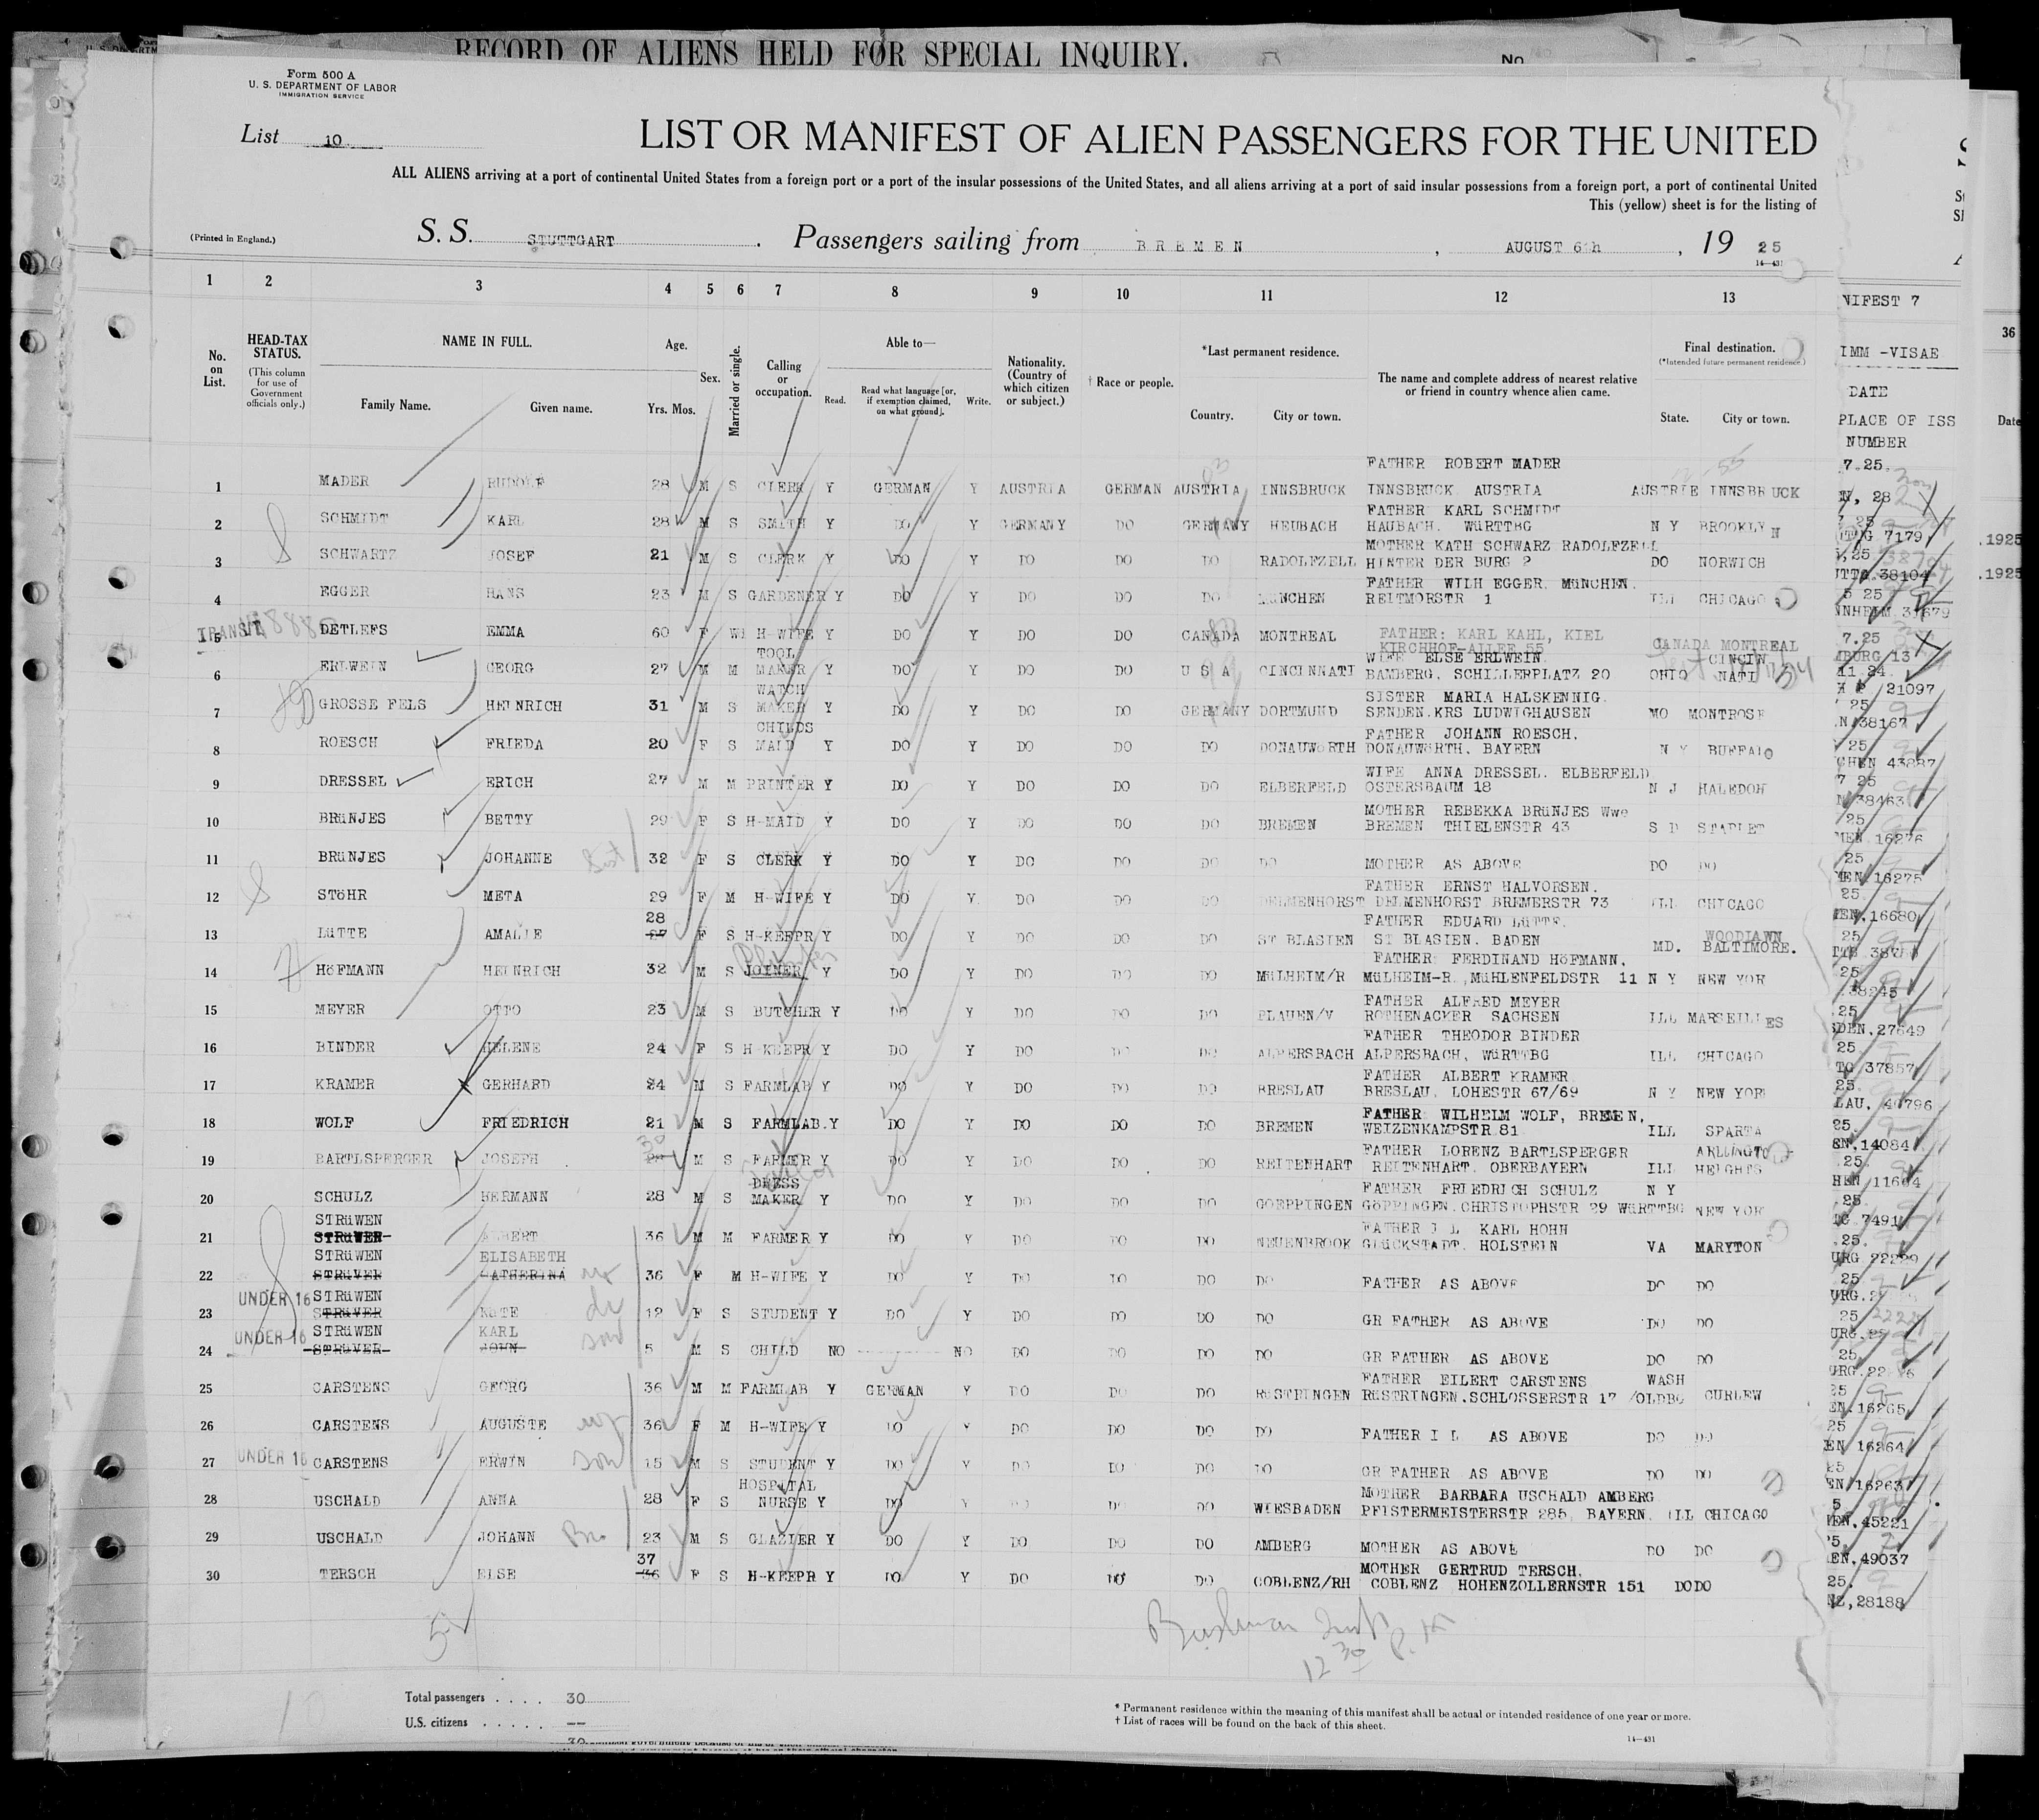 RECORD OF ALIENS HELD FOR SPECIAL INQUIRY.
No
Form 500 A
U. S. DEPARTMENT OF LABOR
IMMIGRATION SERVICE
List 10
LIST OR MANIFEST OF ALIEN PASSENGERS FOR THE UNITED
ALL ALIENS arriving at a port of continental United States from a foreign port or a port of the insular possessions of the United States, and all aliens arriving at a port of said insular possessions from a foreign port, a port of continental United
This (yellow) sheet is for the listing of
(Printed in England.) S. S. STUTTGART. Passengers sailing from BREMEN, AUGUST 6th, 19 25
14-431
1 2 3 4 5 6 7 8 9 10 11 12 13
NIFEST 7
36
No. on List. HEAD-TAX STATUS. (This column for use of Government officials only.) NAME IN FULL. Family Name. Given name. Age. Yrs. Mos. Sex. Married or single. Calling or occupation. Able to— Read. Read what language [or, if exemption claimed, on what ground]. Write. Nationality. (Country of which citizen or subject.) † Race or people. *Last permanent residence. Country. City or town. The name and complete address of nearest relative or friend in country whence alien came. Final destination. (*Intended future permanent residence.) State. City or town.
IMM -VISAE
DATE
PLACE OF ISS
NUMBER
Date
FATHER ROBERT MADER 7.25.
1 MADER RUDOLF 28 M S CLERK Y GERMAN Y AUSTRIA GERMAN AUSTRIA INNSBRUCK INNSBRUCK AUSTRIA AUSTRIE INNSBRUCK
FATHER KARL SCHMIDT
2 SCHMIDT KARL 28 M S SMITH Y DO Y GERMANY DO GERMANY HEUBACH HAUBACH. WüRTTBG N Y BROOKLYN 7179
MOTHER KATH SCHWARZ RADOLFZELL
3 SCHWARTZ JOSEF 21 M S CLERK Y DO Y DO DO DO RADOLFZELL HINTER DER BURG 2 DO NORWICH 38104
FATHER WILH EGGER. MüNCHEN.
4 EGGER HANS 23 M S GARDENER Y DO Y DO DO DO MüNCHEN REITMORSTR 1 ILL CHICAGO
TRANSIT
5 DETLEFS EMMA 60 F WI H-WIFE Y DO Y DO DO CANADA MONTREAL FATHER: KARL KAHL, KIEL KIRCHHOF-ALLEE 55 CANADA MONTREAL
6 ERLWEIN GEORG 27 M M TOOL MAKER Y DO Y DO DO U S A CINCINNATI WIFE ELSE ERLWEIN BAMBERG. SCHILLERPLATZ 20 OHIO CINCINNATI 21097
7 GROSSE FELS HEINRICH 31 M S WATCH MAKER Y DO Y DO DO GERMANY DORTMUND SISTER MARIA HALSKENNIG. SENDEN.KRS LUDWIGHAUSEN MO MONTROSE 38167
8 ROESCH FRIEDA 20 F S CHILDS MAID Y DO Y DO DO DO DONAUWöRTH FATHER JOHANN ROESCH. DONAUWöRTH. BAYERN N Y BUFFALO 43887
9 DRESSEL ERICH 27 M M PRINTER Y DO Y DO DO DO ELBERFELD WIFE ANNA DRESSEL. ELBERFELD OSTERSBAUM 18 N J HALEDON 38463
10 BRüNJES BETTY 29 F S H-MAID Y DO Y DO DO DO BREMEN MOTHER REBEKKA BRüNJES Wwe BREMEN THIELENSTR 43 S D 16276
11 BRüNJES JOHANNE 32 F S CLERK Y DO Y DO DO DO DO MOTHER AS ABOVE DO DO 16275
12 STöHR META 29 F M H-WIFE Y DO Y DO DO DO DELMENHORST FATHER ERNST HALVORSEN. DELMENHORST BREMERSTR 73 ILL CHICAGO 16680
13 LüTTE AMALIE 28 27 F S H-KEEPR Y DO Y DO DO DO ST BLASIEN FATHER EDUARD LüTTE. ST BLASIEN. BADEN MD. WOODLAWN BALTIMORE.
14 HöFMANN HEINRICH 32 M S JOINER Y DO Y DO DO DO MüLHEIM/R FATHER FERDINAND HöFMANN. MüLHEIM-R.,MüHLENFELDSTR 11 N Y NEW YOR 38245
15 MEYER OTTO 23 M S BUTCHER Y DO Y DO DO DO PLAUEN/V FATHER ALFRED MEYER ROTHENACKER SACHSEN ILL MARSEILLES 27649
16 BINDER HELENE 24 F S H-KEEPR Y DO Y DO DO DO ALPERSBACH FATHER THEODOR BINDER ALPERSBACH, WüRTTBG ILL CHICAGO 37857
17 KRAMER GERHARD 24 M S FARMLAB Y DO Y DO DO DO BRESLAU FATHER ALBERT KRAMER BRESLAU. LOHESTR 67/69 N Y NEW YOR LAU. 40796
18 WOLF FRIEDRICH 21 M S FARMLAB.Y DO Y DO DO DO BREMEN FATHER WILHELM WOLF, BREMEN, WEIZENKAMPSTR 81 ILL SPARTA EN.14084
19 BARTLSPERGER JOSEPH 30 M S FARMER Y DO Y DO DO DO REITENHART FATHER LORENZ BARTLSPERGER REITENHART. OBERBAYERN ILL ARLINGTO HEIGHTS HEN 11664
20 SCHULZ HERMANN 28 M S DRESS MAKER Y DO Y DO DO DO GOEPPINGEN FATHER FRIEDRICH SCHULZ GöPPINGEN.CHRISTOPHSTR 29 WüRTTBG N Y NEW YOR 7491
21 STRüWEN STRüVER ALBERT 36 M M FARMER Y DO Y DO DO DO NEUENBROOK FATHER I L KARL HOHN GLüCKSTADT. HOLSTEIN VA MARYTON URG 22229
22 STRüWEN STRüVER ELISABETH CATHERINA 36 F M H-WIFE Y DO Y DO DO DO DO FATHER AS ABOVE DO DO
UNDER 16
23 STRüWEN STRüVER KäTE 12 F S STUDENT Y DO Y DO DO DO DO GR FATHER AS ABOVE DO DO
UNDER 16
24 STRüWEN STRüVER KARL JOHN son 5 M S CHILD NO NO DO DO DO DO GR FATHER AS ABOVE DO DO
25 CARSTENS GEORG 36 M M FARMLAB Y GERMAN Y DO DO DO RüSTRINGEN FATHER EILERT CARSTENS RüSTRINGEN.SCHLOSSERSTR 17 /OLDBG WASH CURLEW EN.16265
26 CARSTENS AUGUSTE 36 F M H-WIFE Y DO Y DO DO DO DO FATHER I L AS ABOVE DO DO EN 16264
27 UNDER 16 CARSTENS ERWIN son 15 M S STUDENT Y DO Y DO DO DO DO GR FATHER AS ABOVE DO DO EN 16263
28 USCHALD ANNA 28 F S HOSPITAL NURSE Y DO Y DO DO DO WIESBADEN MOTHER BARBARA USCHALD AMBERG PFISTERMEISTERSTR 285 BAYERN. ILL CHICAGO 45221
29 USCHALD JOHANN Bro 23 M S GLAZIER Y DO Y DO DO DO AMBERG MOTHER AS ABOVE DO DO EN.49037
30 TERSCH ELSE 37 36 F S H-KEEPR Y DO Y DO DO DO COBLENZ/RH MOTHER GERTRUD TERSCH. COBLENZ HOHENZOLLERNSTR 151 DO DO NZ,28188
12 30 P. M
10
Total passengers . . . . 30
U.S. citizens . . . . . —
30
* Permanent residence within the meaning of this manifest shall be actual or intended residence of one year or more.
† List of races will be found on the back of this sheet.
14-431